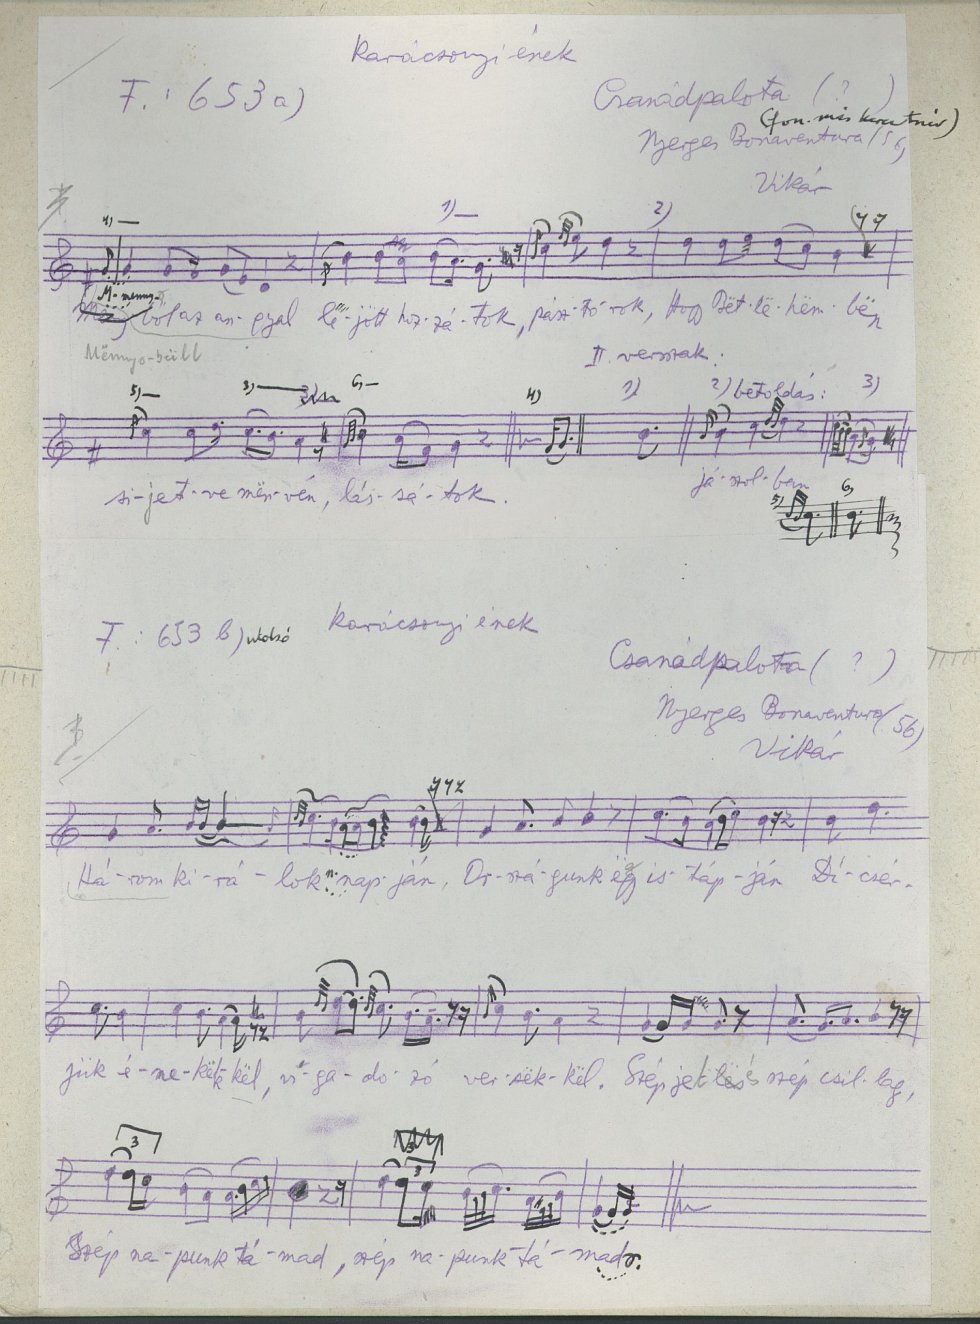 Karácsonyi ének
F. : 653 a)
Csanádpalota ( ? )
(fon. más keresztnév)
Nyerges Bonaventura (56)
Vikár
4) 1) 2)
M-menny-
ből az an-gyal le-jött hoz-zá-tok, pász-to-rok, Hogy Bët-lë-hëm-bën
Mënnyo-bűll
II. versszak :
5) 3) 6) 4) 1) 2) betoldás: 3)
si-jet-ve mën-vén, lás-sá-tok.
já-szol-ban
5) 6)
F. : 653 b) utolsó
Karácsonyi ének
Csanádpalota ( ? )
Nyerges Bonaventura (56)
Vikár
Há-rom ki-rá-lok nap-ján, Or-szá-gunk ëgy is-táp-ján Di-csér-
jük é-ne-këk-kël, vi-ga-do-zó ver-sëk-kël. Szép jel-lés szép csil-lag,
3 3
Szép na-punk tá-mad, szép na-punk tá-mad.